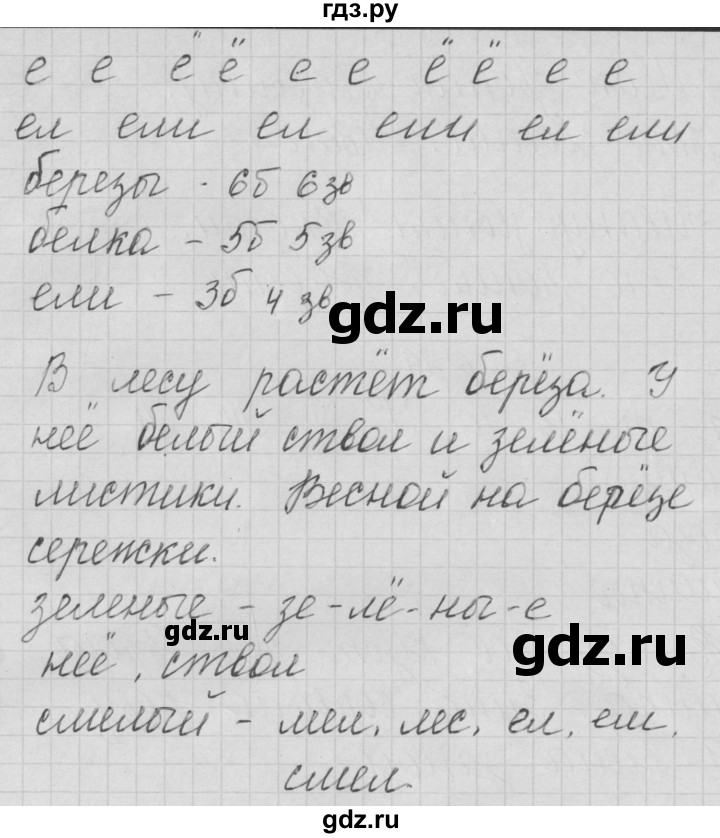 гдз.ру
е е ё ё е е ё ё е е
ел ели ел ели ел ели
березы - 6б 6 зв
белка - 5б 5 зв
ели - 3б 4 зв
gdz.ru
В лесу растёт берёза. У
неё белый ствол и зелёные
листики. Весной на берёзе
сережки.
зеленые - зе-лё-ны-е
gdz.ru
gdz.ru
неё, ствол
смелый - мел, лес, ел, ем,
смел.
gdz.ru